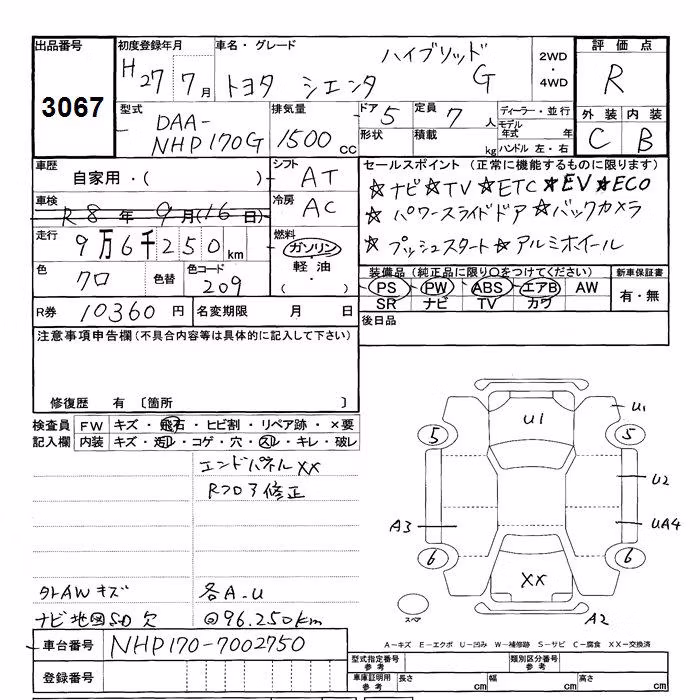 出品番号 初度登録年月 車名・グレード 評価点
3067 H27 7月 トヨタ シエンタ ハイブリッド G 2WD・4WD R
型式 排気量 ドア 定員 ディーラー・並行 外装 内装
DAA-NHP170G 1500cc 5 7人 モデル年式 年 C B
形状 積載 kg ハンドル 左・右
車歴 自家用・( ) シフト AT
セールスポイント (正常に機能するものに限ります)
車検 R8年9月(16日) 冷房 AC
☆ナビ☆TV☆ETC★EV★ECO
☆パワースライドドア☆バックカメラ
★プッシュスタート☆アルミホイール
走行 9万6千250km 燃料 ガソリン・軽油・( )
色 クロ 色替 色コード 209
装備品 (純正品に限り○をつけてください) 新車保証書
PS PW ABS エアB AW 有・無
SR ナビ TV カワ
R券 10360円 名変期限 月 日
後日品
注意事項申告欄(不具合内容等は具体的に記入して下さい)
修復歴 有 〔箇所 〕
検査員 FW キズ・飛石・ヒビ割・リペア跡・×要
記入欄 内装 キズ・汚レ・コゲ・穴・スレ・キレ・破レ
エンドパネルXX
Rフロア修正
外AWキズ 各A.U
ナビ地図SD欠 @96.250km
U1 U1
5 5
U2
A3 UA4
6 6
XX
スペア A2
A-キズ E-エクボ U-凹み W-補修跡 S-サビ C-腐食 XX-交換済
車台番号 NHP170-7002750
型式指定番号 参考 類別区分番号 参考
登録番号
車庫証明用 参考 長さ cm 幅 cm 高さ cm